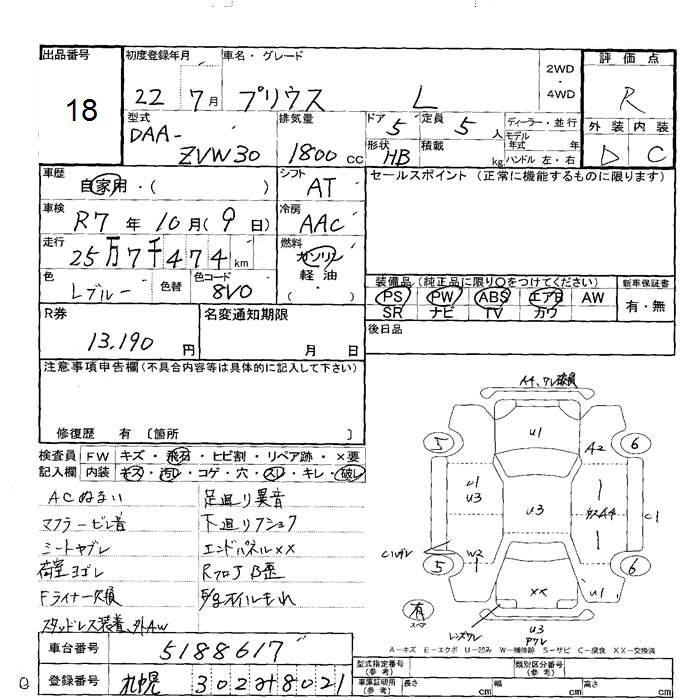 出品番号
18
初度登録年月
22 7月
車名・グレード
プリウス L
2WD
・
4WD
評価点
R
型式
DAA-
ZVW30
排気量
1800 CC
ドア 5
定員 5 人
形状 HB
積載 kg
ディーラー・並行
モデル年式 年
ハンドル 左・右
外装 内装
D C
車歴
自家用・( )
シフト
AT
セールスポイント (正常に機能するものに限ります)
車検
R7年 10月( 9日)
冷房
AAC
走行
25万7千474km
燃料
ガソリン
軽油
( ・ )
色
Lブルー
色替
色コード
8V0
装備品 (純正品に限り○をつけてください)
PS PW ABS エアB AW
SR ナビ TV カワ
新車保証書
有・無
R券
13,190 円
名変通知期限
月 日
後日品
注意事項申告欄(不具合内容等は具体的に記入して下さい)
修復歴 有 〔箇所 〕
検査員
記入欄
FW キズ・飛石・ヒビ割・リペア跡・×要
内装 キズ・汚レ・コゲ・穴・スレ・キレ・破レ
ACぬるい
足廻り異音
マフラービレ音
下廻りフショク
シートヤブレ
エンドパネル××
荷室ヨゴレ
RフロアB歪
Fライナー欠損
E/gオイルもれ
スタッドレス装着、外AW
車台番号
5188617
登録番号
札幌 302 ま 8021
U1
A2
5
6
U1
U3
U3
C1
W2
1
5
6
××
U1
有
スペア
U3
A-キズ E-エクボ U-凹み W-補修跡 S-サビ C-腐食 XX-交換済
型式指定番号
(参考)
類別区分番号
(参考)
車庫証明用
(参考)
長さ cm
幅 cm
高さ cm